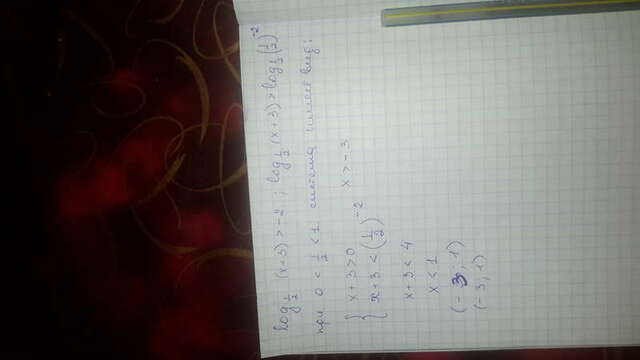 log_{1/2} (x+3) > -2 ; log_{1/2} (x+3) > log_{1/2} (1/2)^{-2}
при 0 < 1/2 < 1 система имеет вид:
{ x+3 > 0 x > -3
{ x+3 < (1/2)^{-2}
x+3 < 4
x < 1
(-3; 1)
(-3; 1)